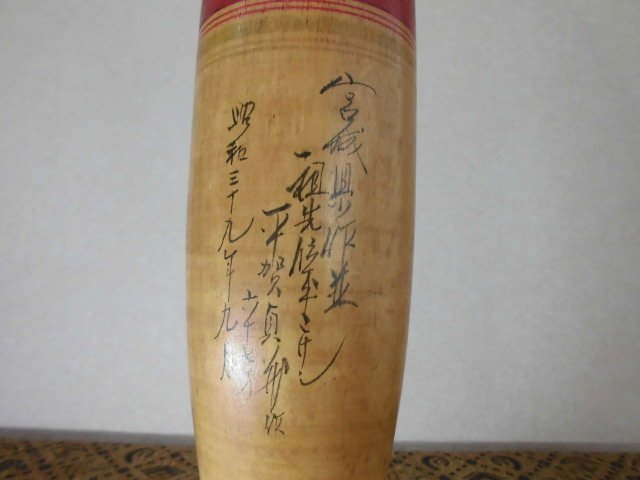 宮城県作並
一祖先伝平こけし
平賀貞蔵作
六十七才
昭和三十九年九月